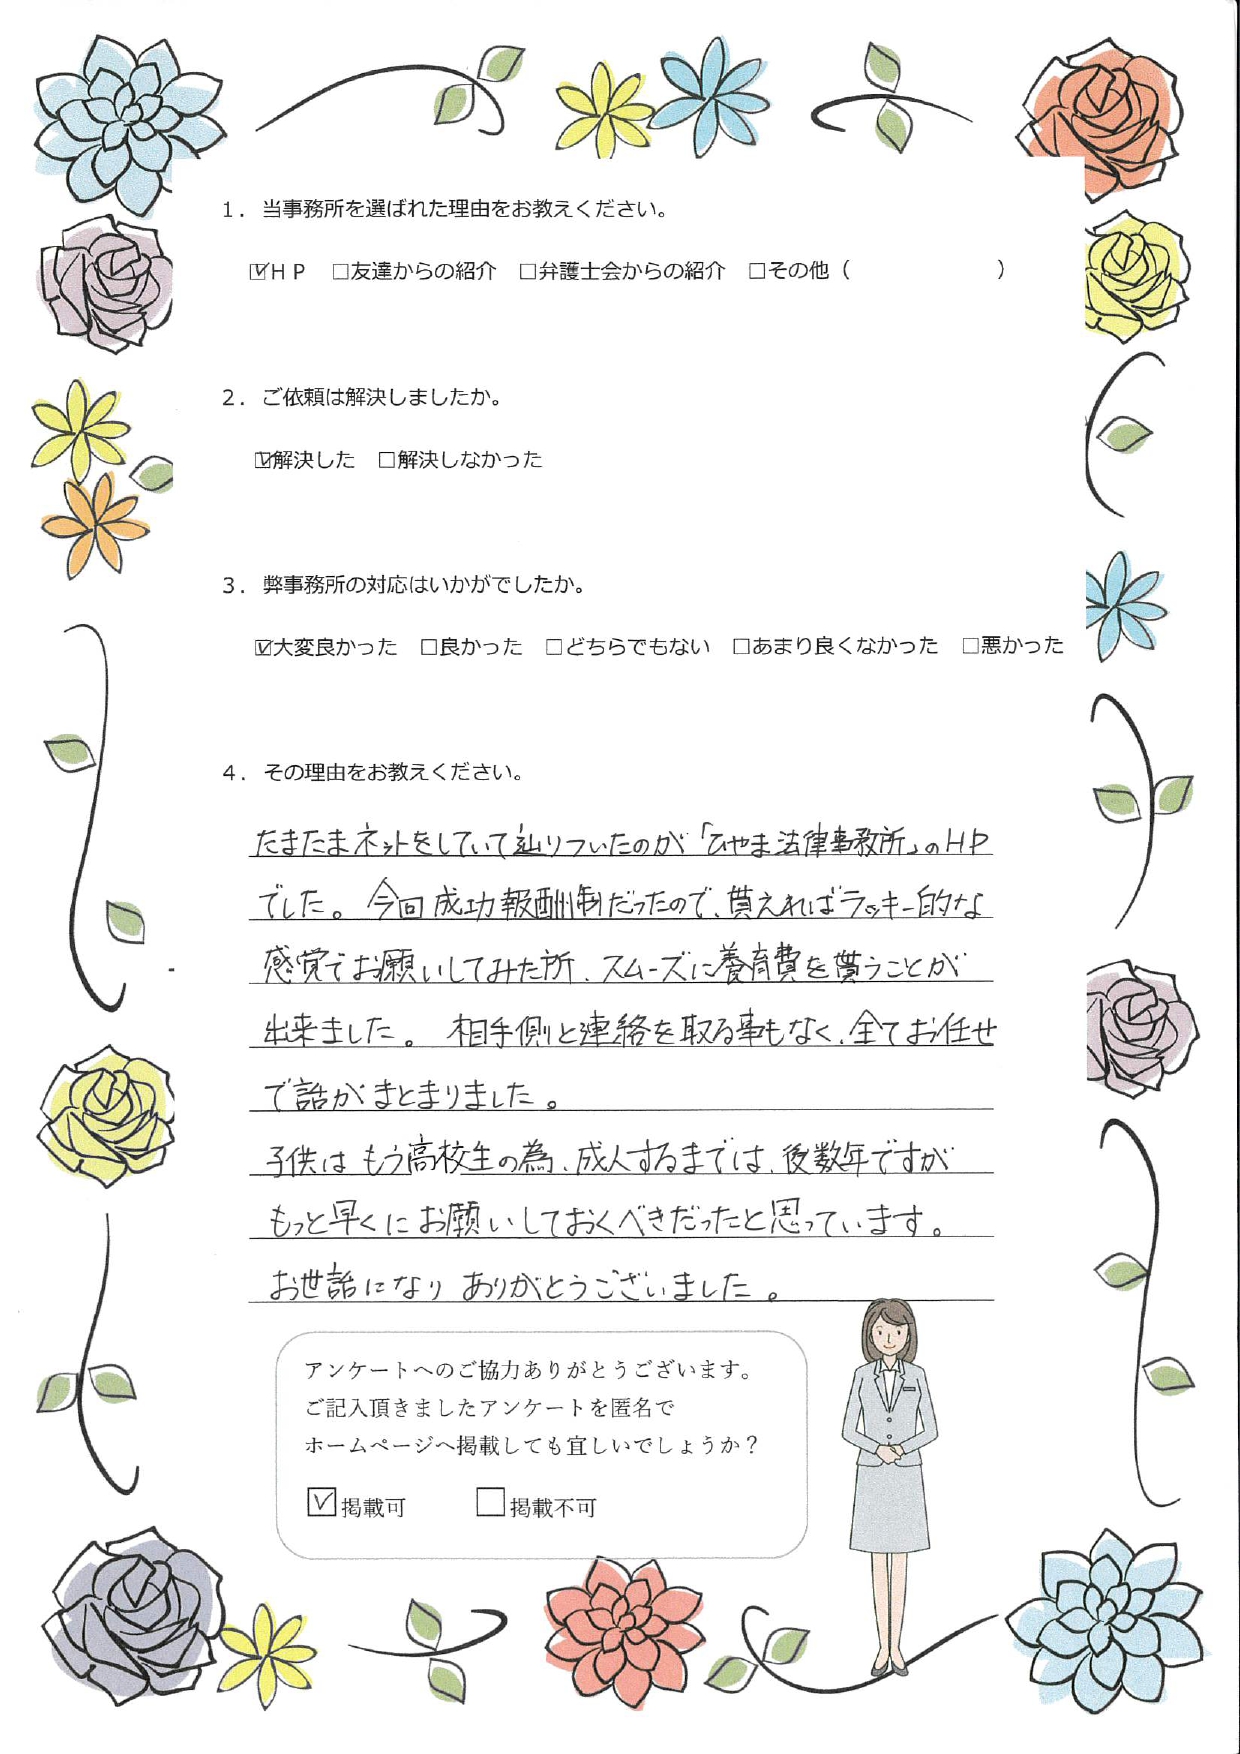 1．当事務所を選ばれた理由をお教えください。
☑ＨＰ　□友達からの紹介　□弁護士会からの紹介　□その他（　　　　　　　）
2．ご依頼は解決しましたか。
☑解決した　□解決しなかった
3．弊事務所の対応はいかがでしたか。
☑大変良かった　□良かった　□どちらでもない　□あまり良くなかった　□悪かった
4．その理由をお教えください。
たまたまネットをしていて辿りついたのが「ひやま法律事務所」のHP
でした。今回成功報酬制だったので、貰えればラッキー的な
感覚でお願いしてみた所、スムーズに養育費を貰うことが
出来ました。相手側と連絡を取る事もなく、全てお任せ
で話がまとまりました。
子供はもう高校生の為、成人するまでは、後数年ですが
もっと早くにお願いしておくべきだったと思っています。
お世話になりありがとうございました。
アンケートへのご協力ありがとうございます。
ご記入頂きましたアンケートを匿名で
ホームページへ掲載しても宜しいでしょうか？
☑掲載可　□掲載不可